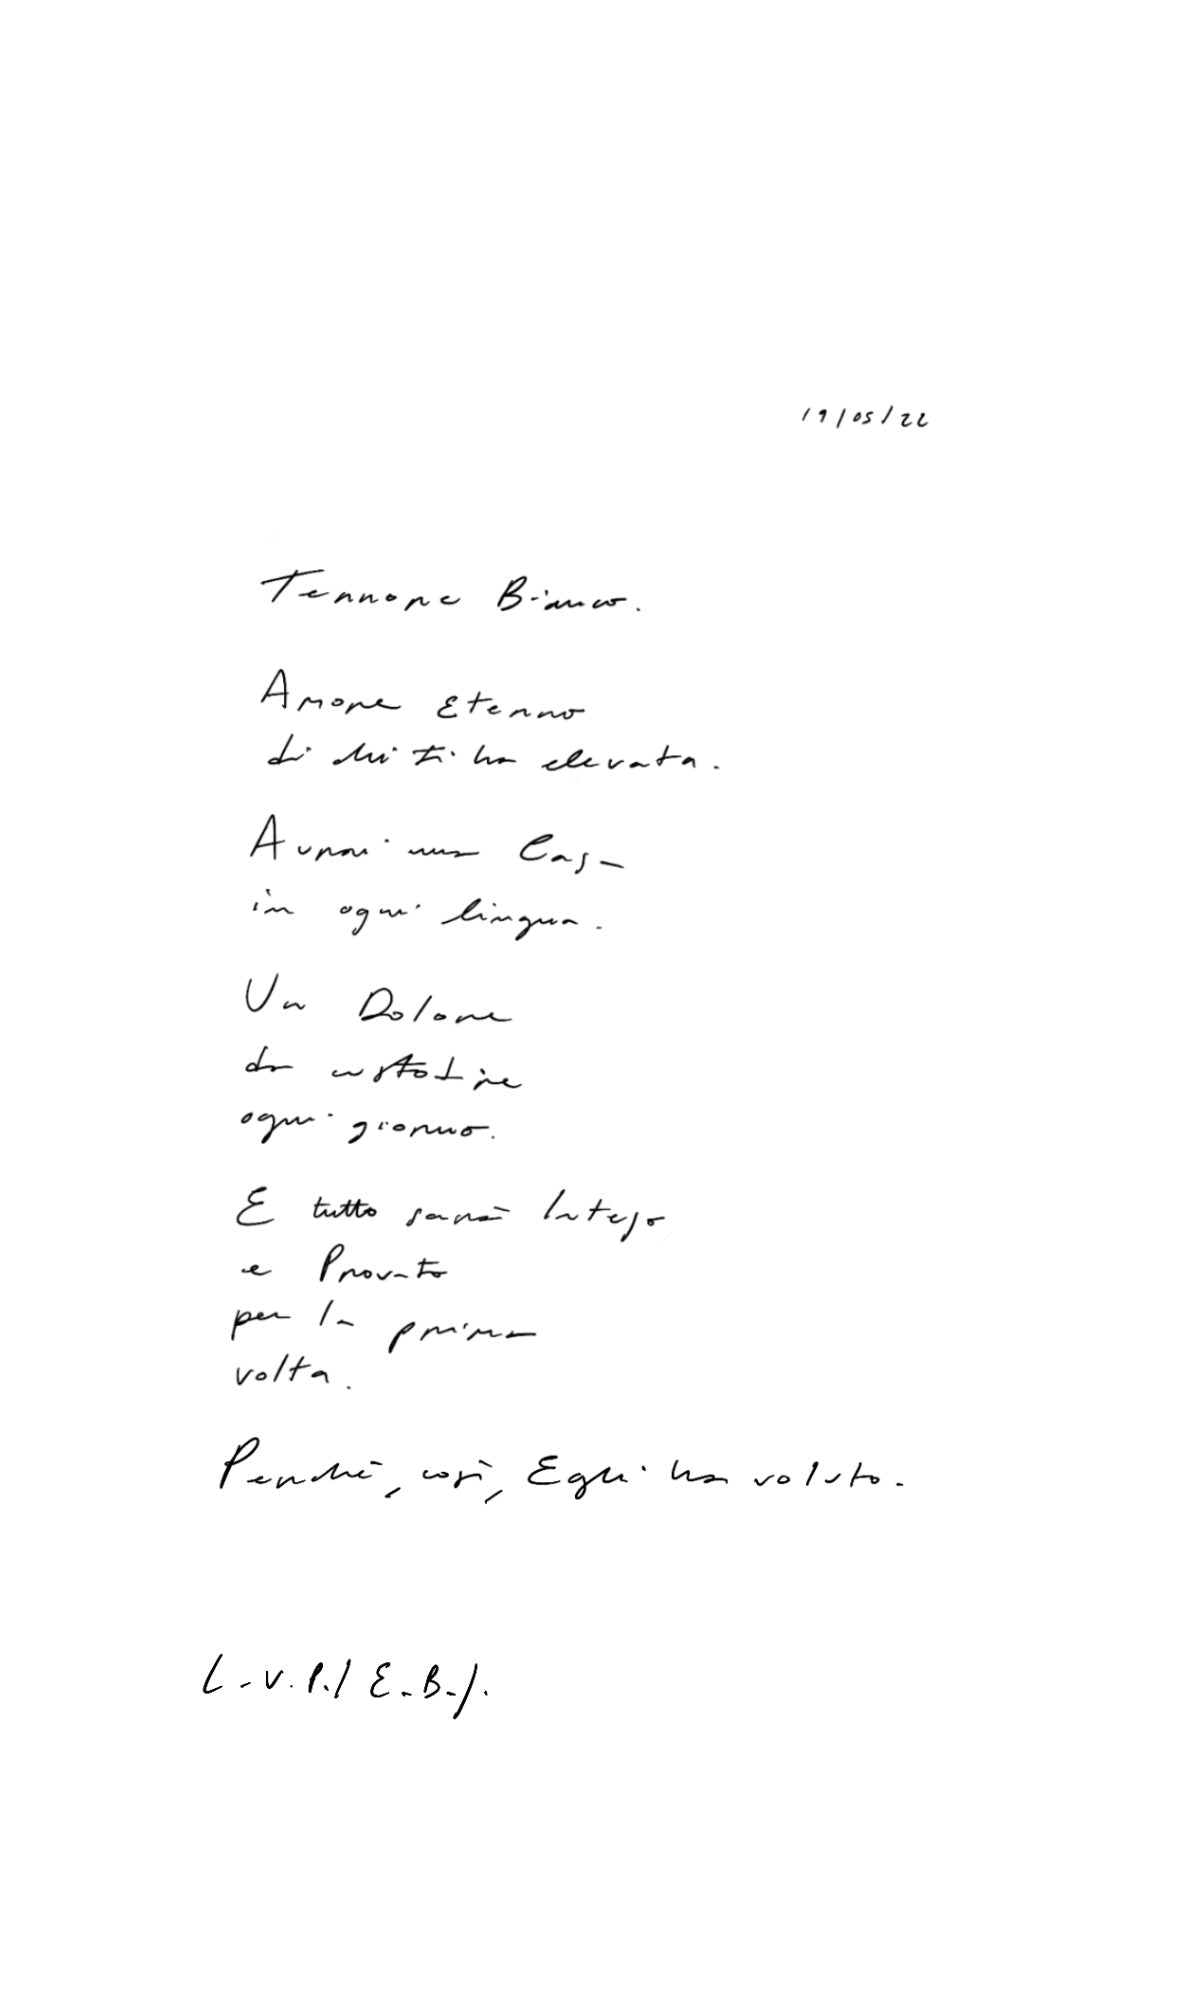 19/05/22
Terrore Bianco.
Amore Eterno
di chi ti ha elevata.
Avrai una Casa
in ogni lingua.
Un Dolore
da custodire
ogni giorno.
E tutto sarà Inteso
e Provato
per la prima
volta.
Perchè, così, Egli ha voluto.
L.V.P./ E.B./.